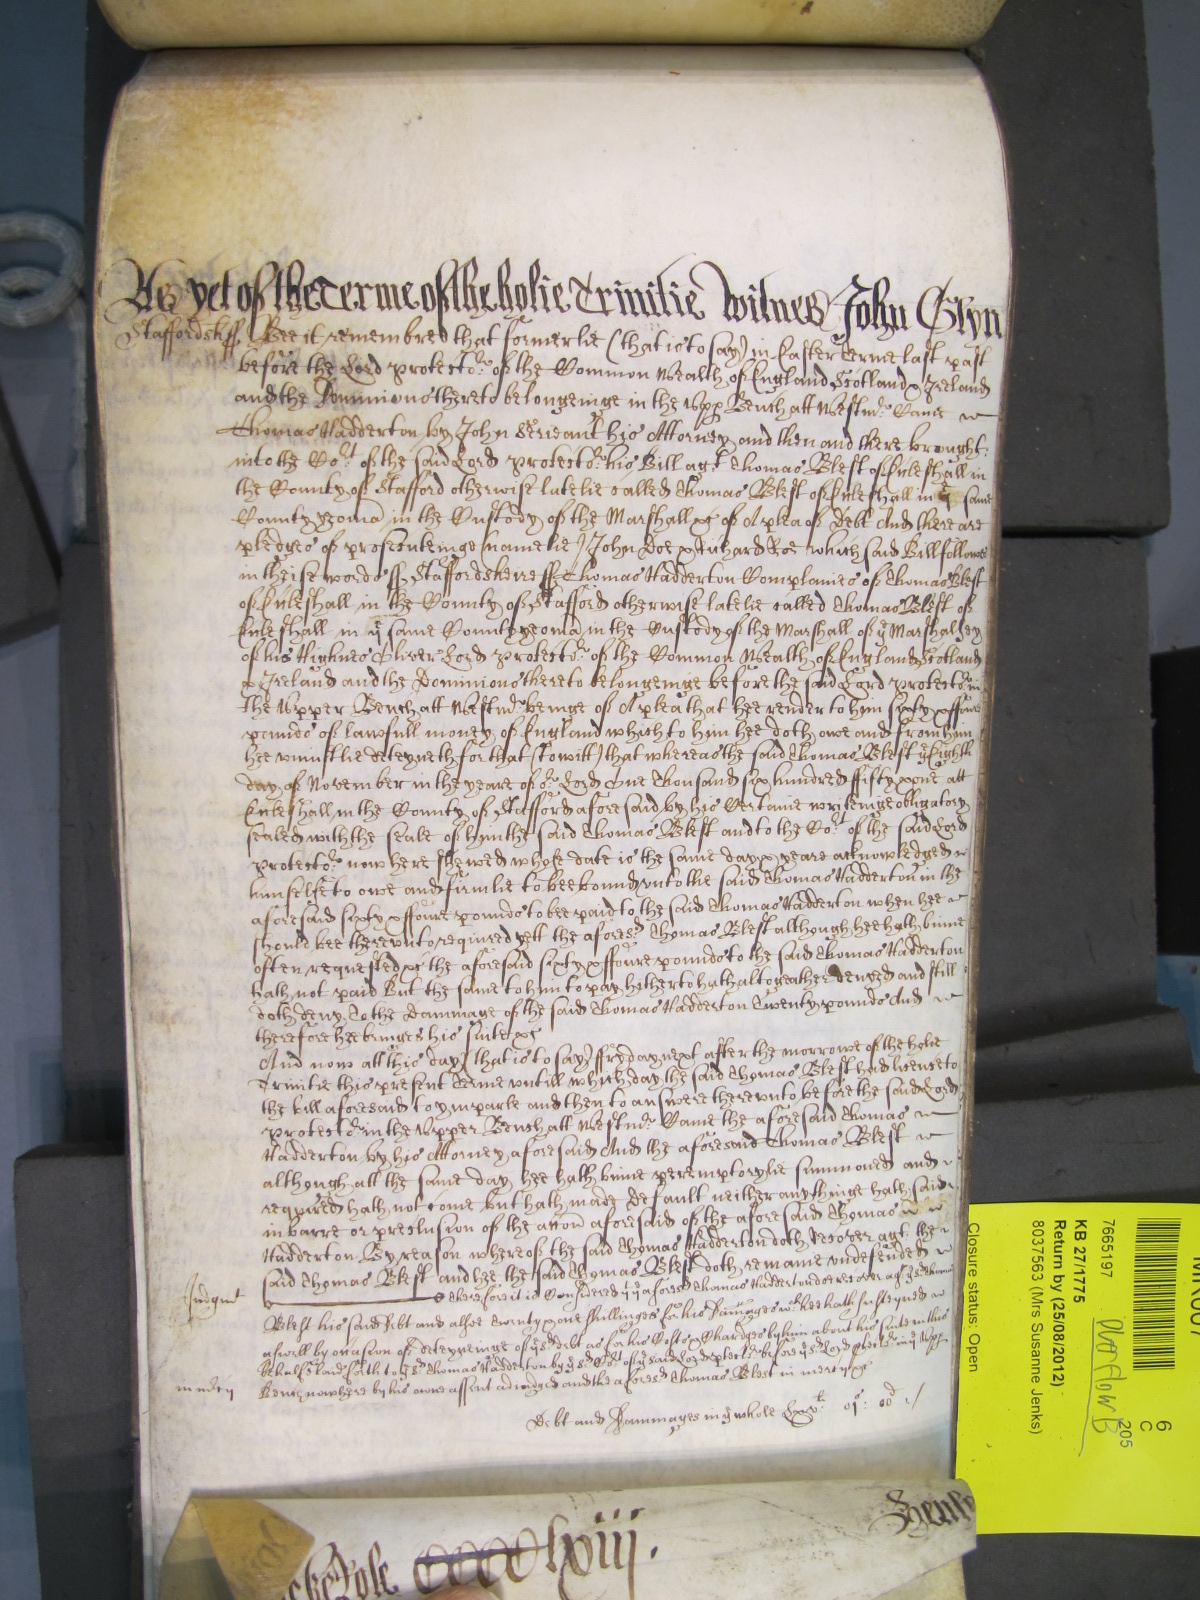 As yet of the Terme of the holie Trinitie Witnes John Glyn
Staffordsh ss Bee it remembred that formerlie (that is to say) in Easter Terme last past
before the Lord protector of the Common Wealth of England Scotland & Ireland
and the Dominions thereto belongeinge in the Upp Bench att Westmr Came
Thomas Hadderton by John Serieant his Attorney and then and there brought
into the Cort of the said Lord protector his Bill agt Thomas Blest of Eccleshall in
the County of Stafford otherwise latelie called Thomas Blest of Eccleshall in ye same
County yeoman in the Custody of the Marshall &c of A plea of Debt And there are
pledges of prosecuteinge (namelie) John Doe & Richard Roe which said Bill followes
in theise words ss Staffordsheire ss Thomas Hadderton Complaines of Thomas Blest
of Eccleshall in the County of Stafford otherwise latelie called Thomas Blest of
Eccleshall in ye same County yeoman in the Custody of the Marshall of ye Marshalsey
of his Highnes Oliver Lord protector of the Common Wealth of England Scotland
& Ireland and the Dominions thereto belongeinge before the said Lord protector in
the Upper Bench att Westmr beinge of A plea that hee render to him sixty & ffoure
pounds of lawfull money of England which to him hee doth owe and from him
hee uniustlie deteyneth for that (to witt) that whereas the said Thomas Blest ye Eighth
day of November in the yeare of or Lord One Thousand six hundred fifty & one att
Eccleshall in the County of Stafford aforesaid by his Certaine writeinge obligatory
sealed with the seale of him the said Thomas Blest and to the Cort of the said Lord
protector now here shewed whose date is the same day & yeare acknowledged
himselfe to owe and firmlie to bee bound unto the said Thomas Hadderton in the
aforesaid sixty & ffoure pounds to bee paid to the said Thomas Hadderton when hee
should bee thereunto required yett the aforesd Thomas Blest although hee hath binne
often requested &c the aforesaid sixty & ffoure pounds to the said Thomas Hadderton
hath not paid But the same to him to pay hitherto hath altogeather denyed and still
doth deny To the Dammage of the said Thomas Hadderton Twenty pounds And
therefore hee bringes his suite &c
And now att this day (that is to say) ffryday next after the morrowe of the holie
Trinitie this present Terme untill which day the said Thomas Blest had licence to
the bill aforesaid to ymparle and then to answere thereunto before the said Lord
protector in the Upper Bench att Westmr Came the aforesaid Thomas
Hadderton by his Attorney aforesaid And the aforesaid Thomas Blest
although att the same day hee hath binne peremptorylie summoned and
required hath not come but hath made default neither any thinge hath said
in barre or preclusion of the accon aforesaid of the aforesaid Thomas
Hadderton By reason whereof the said Thomas Hadderton doth recover agt the
said Thomas Blest and hee the said Thomas Blest doth remaine undefended
Judgmt Therefore it is Considered yt ye aforesd Thomas Hadderton doe recover agt ye sd Thomas
Blest his said debt and alsoe twenty & one shillinges for his Dammages wch hee hath susteyned
aswell by occasion of deteyneinge of ye sd debt as for his Costs & Chardges by him about his suite in this
behalfe laid forth to ye sd Thomas Hadderton by ye sd Cort of ye said Lord ptector before ye sd Lord ptector in ye Upp
mercy Bench now here by his owne assent adiudged and the aforesd Thomas Blest in mercy &c
Debt and Dammages in ye whole Lxvl: 01s: 00d
Role CCCClxiii.
7665197
KB 27/1775
Return by (25/08/2012)
8037563 (Mrs Susanne Jenks)
Closure status: Open
6
C
205